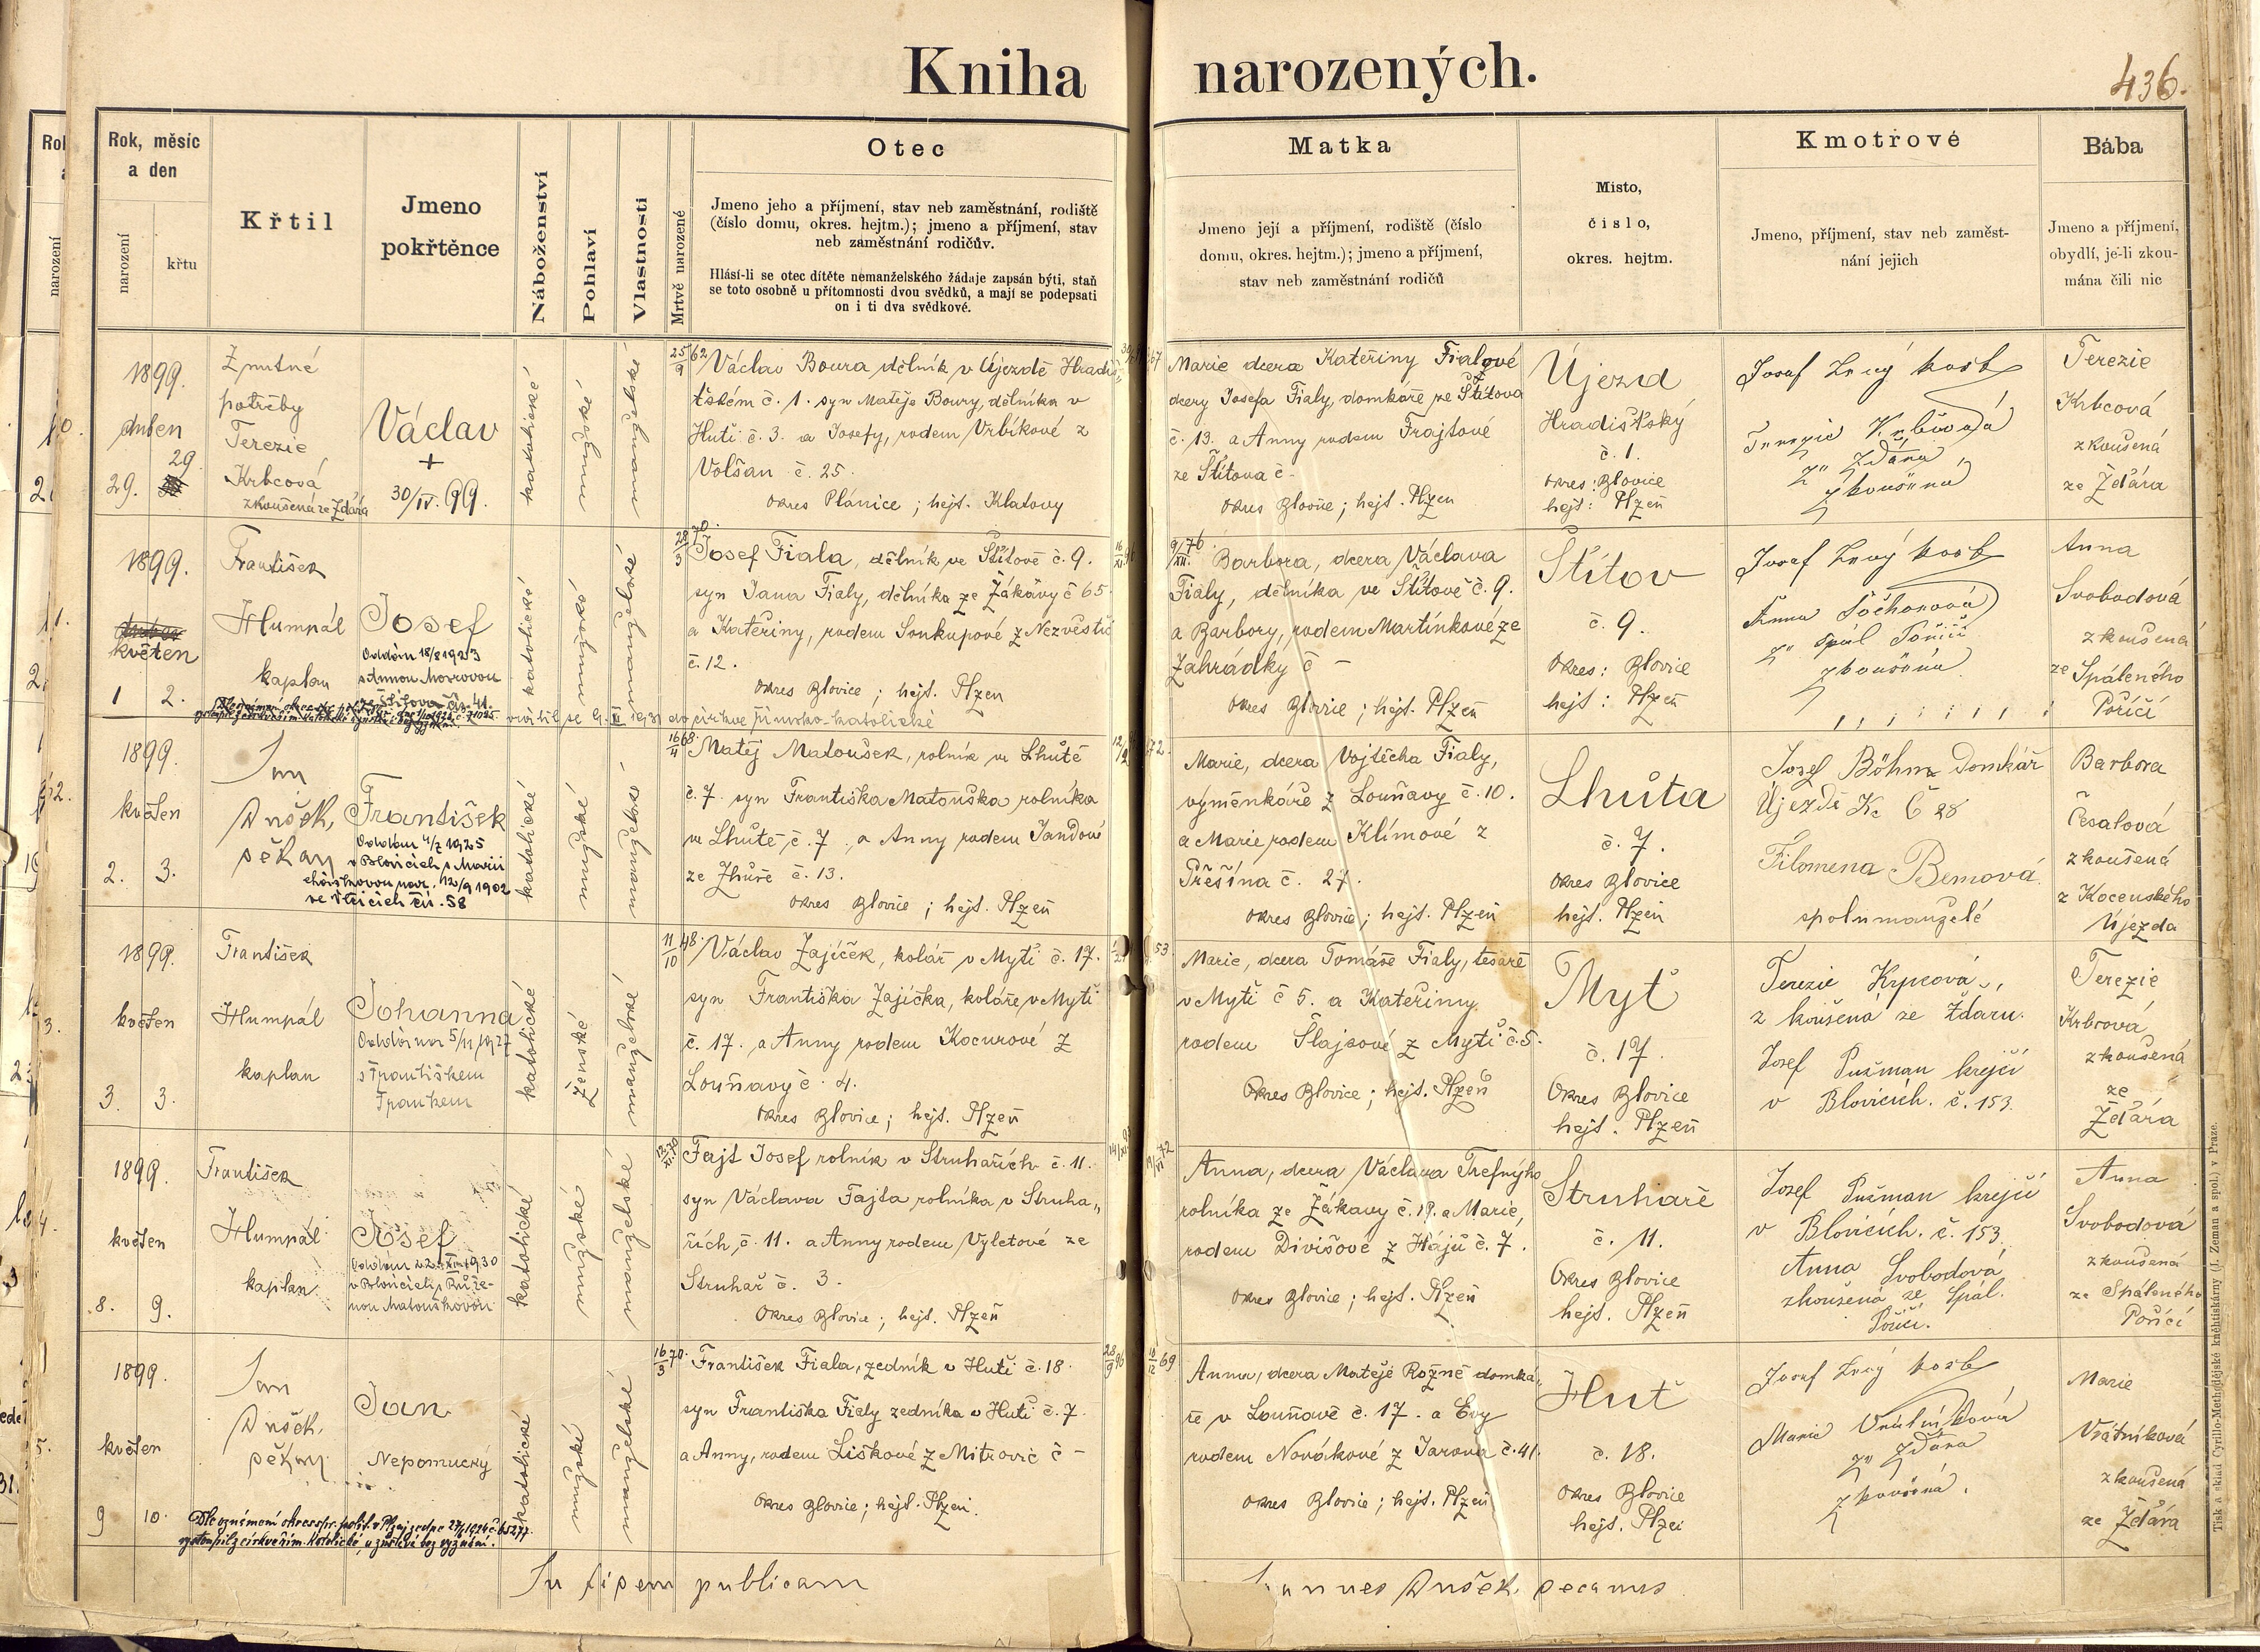 Kniha narozených.
436.
Rok, měsíc
a den
narození
křtu
Křtil
Jmeno
pokřtěnce
Náboženství
Pohlaví
Vlastnosti
Mrtvě narozené
Otec
Jmeno jeho a příjmení, stav neb zaměstnání, rodiště
(číslo domu, okres. hejtm.); jmeno a příjmení, stav
neb zaměstnání rodičův.
Hlásí-li se otec dítěte nemanželského žádaje zapsán býti, staň
se toto osobně u přítomnosti dvou svědků, a mají se podepsati
on i ti dva svědkové.
Matka
Jmeno její a příjmení, rodiště (číslo
domu, okres. hejtm.); jmeno a příjmení,
stav neb zaměstnání rodičů
Místo,
číslo,
okres. hejtm.
Kmotrové
Jmeno, příjmení, stav neb zaměst-
nání jejich
Bába
Jmeno a příjmení,
obydlí, je-li zkou-
mána čili nic
1899.
duben
29.
29
potřeby
Terezie
Krbcová
zkoušená ze Ždára
Václav
+
30/IV. 99.
katolické
mužské
manželské
25/9 62
Václav Boura dělník v Újezdě Hradiš„
tském č. 1. syn Matěje Boury, dělníka v
Huti č. 3. a Josefy, rodem Vrbíkové z
Volšan č. 25.
okres Plánice; hejt. Klatovy
Marie dcera Kateřiny Fialové
dcery Josefa Fialy, domkáře ze Štítova
č. 13. a Anny rodem Frajtové
ze Štítova č -
okres Blovice; hejt. Plzen
Újezd
Hradištský
č. 1.
okres: Blovice
hejt: Plzeň
Josef
ze Ždára
zkoušená
Terezie
Krbcová
zkoušená
ze Ždára
1899.
květen
1 2.
František
Humpál
kaplan
Josef
Oddán 18/8 1923
s Annou
Štítova čís. 41.
katolické
mužské
manželské
28/3 70.
Josef Fiala, dělník ve Štítově č. 9.
syn Jana Fialy, dělníka ze Žákavy č 65.
a Kateřiny, rodem Soukupové z Nezvěstic
č. 12.
okres Blovice; hejt. Plzen
do církve římsko-katolické
9/XII. 76.
Barbora, dcera Václava
Fialy, dělníka ve Štítově č. 9.
a Barbory, rodem Martínkové ze
Zahrádky č -
okres Blovice; hejt. Plzeň
Štítov
č. 9.
okres: Blovice
hejt: Plzeň
Josef
Anna
zkoušená
Anna
Svobodová
zkoušená
ze Spáleného
Poříčí
1899.
květen
2. 3.
Jan
Dušek,
děkan
František
Oddán 4/7 1925
v Blovicích s Marií
nar. 12/9 1902
ve Vlčicích čís. 58
katolické
mužské
manželské
16/4 68.
Matěj Matoušek, rolník ve Lhutě
č. 7 syn Františka Matouška rolníka
ve Lhutě, č. 7., a Anny rodem Jandové
ze Zhůře č. 13.
okres Blovice; hejt. Plzeň
Marie, dcera Vojtěcha Fialy,
výměnkáře z Louňavy č. 10.
a Marie rodem Klímové z
Přešína č. 27.
okres Blovice; hejt. Plzeň
Lhůta
č. 7.
okres Blovice
hejt. Plzeň
Josef Böhm Domkář
Újezdě K. Č 28
Filomena Bemová
spolumanželé
Barbora
Česalová
zkoušená
z Kocenského
Újezda
1899.
květen
3. 3.
František
Humpál
kaplan
Johanna
Oddána 5/11 1927
s Františkem
Frankem
katolické
ženské
manželské
11/10 48.
Václav Zajíček, kolář v Myti č. 17.
syn Františka Zajíčka, koláře v Myti
č. 17. a Anny rodem Kocurové z
Louňavy č. 4.
okres Blovice; hejt. Plzeň
53.
Marie, dcera Tomáše Fialy, tesaře
v Myti č 5. a Kateřiny
rodem Šlajsové z Myti č. 5.
Okres Blovice; hejt. Plzeň
Myť
č. 17.
Okres Blovice
hejt. Plzeň
Terezie Krpcová,
zkoušená ze Ždaru.
Josef Pušman krejčí
v Blovicích. č. 153.
Terezie
Krbcová
zkoušená
ze
Ždára
1899.
květen
8. 9.
František
Humpál
kaplan
Josef
v Blovicích s Růže-
nou Matouškovou
katolické
mužské
manželské
Fajt Josef rolník v Struhařích č. 11.
syn Václava Fajta rolníka v Struha„
řích, č. 11. a Anny rodem Vyletové ze
Struhař č. 3.
Okres Blovice; hejt. Plzeň
Anna, dcera Václava Trefného
rolníka ze Žákavy č. 19. a Marie,
rodem Divišové z Hájů č. 7.
okres Blovice; hejt. Plzeň
Struhaře
č. 11.
Okres Blovice
hejt. Plzeň
Josef Pušman krejčí
v Blovicích. č. 153.
Anna Svobodová
zkoušená ze Spál.
Poříčí.
Anna
Svobodová
zkoušená
ze Spáleného
Poříčí
1899.
květen
9 10.
Jan
Dušek,
děkan
Jan
Nepomucký
katolické
mužské
manželské
16/3 70.
František Fiala, zedník v Huti č. 18.
syn Františka Fialy zedníka v Huti č. 7.
a Anny, rodem Liškové z Mitrovic č -
Okres Blovice; hejt. Plzeň.
28/9 96
10/12 69
Anna, dcera Matěje Rožně domká„
ře v Louňavě č. 17. a Evy
rodem Novákové z Jarova č. 41.
okres Blovice; hejt. Plzeň
Huť
č. 18.
okres Blovice
hejt. Plzeň
Josef
Marie Vrátníková
ze Ždára
zkoušená.
Marie
Vrátníková
zkoušená
ze Ždára
publicam
Dušek, decanus
Tisk a sklad Cyrillo-Methodějské knihtiskárny (J. Zeman a spol.) v Praze.